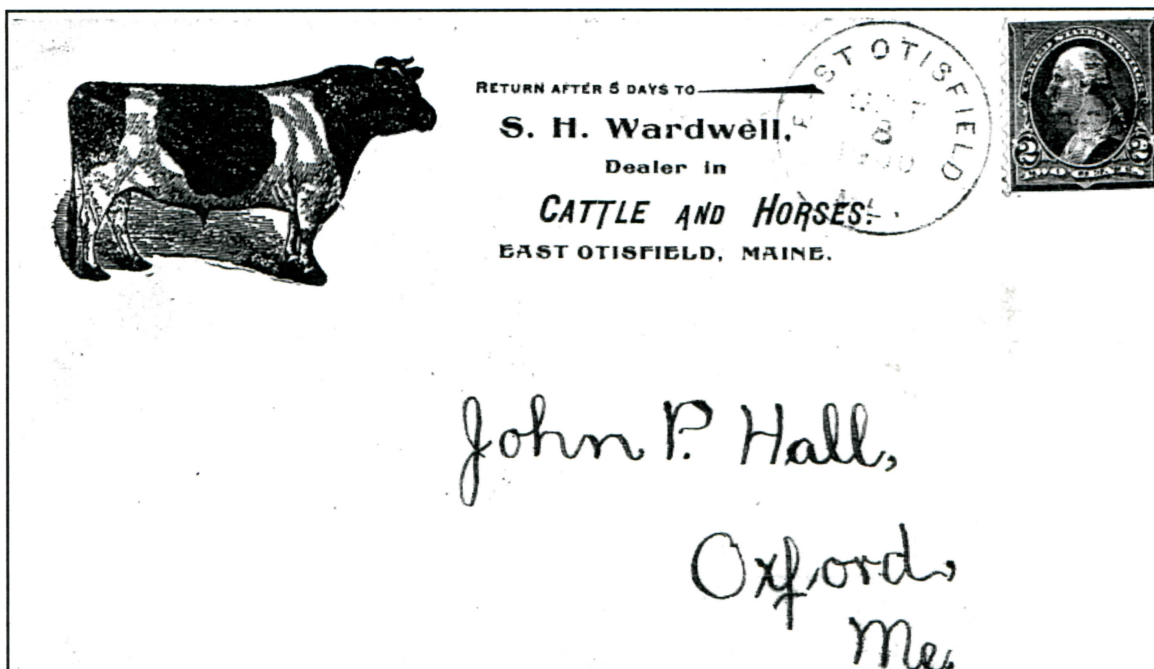 RETURN AFTER 5 DAYS TO
S. H. Wardwell,
Dealer in
CATTLE AND HORSES.
EAST OTISFIELD, MAINE.
EAST OTISFIELD
8
ME.
UNITED STATES POSTAGE
2 2
TWO CENTS
John P. Hall,
Oxford,
Me.